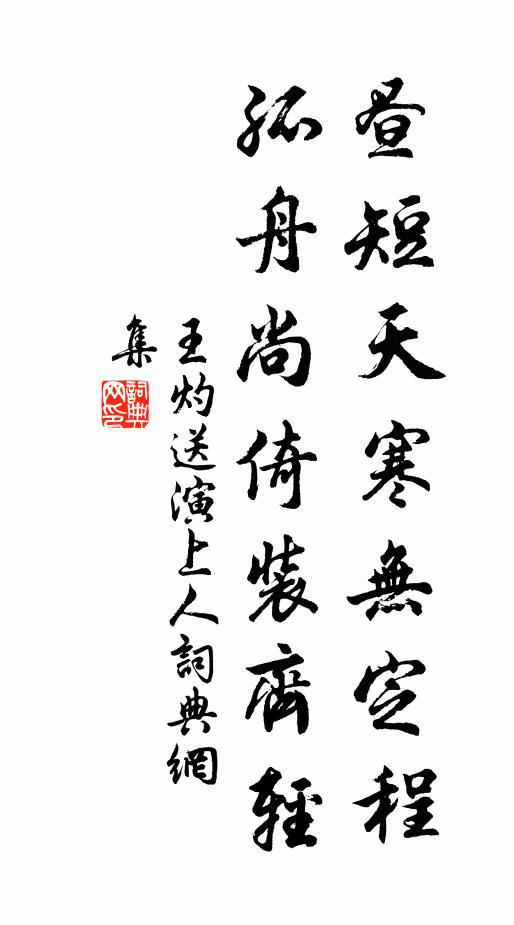 昼短天寒無定程
孤舟尚倚裝齊輕
王灼送演上人詞典網
集
詞典網印